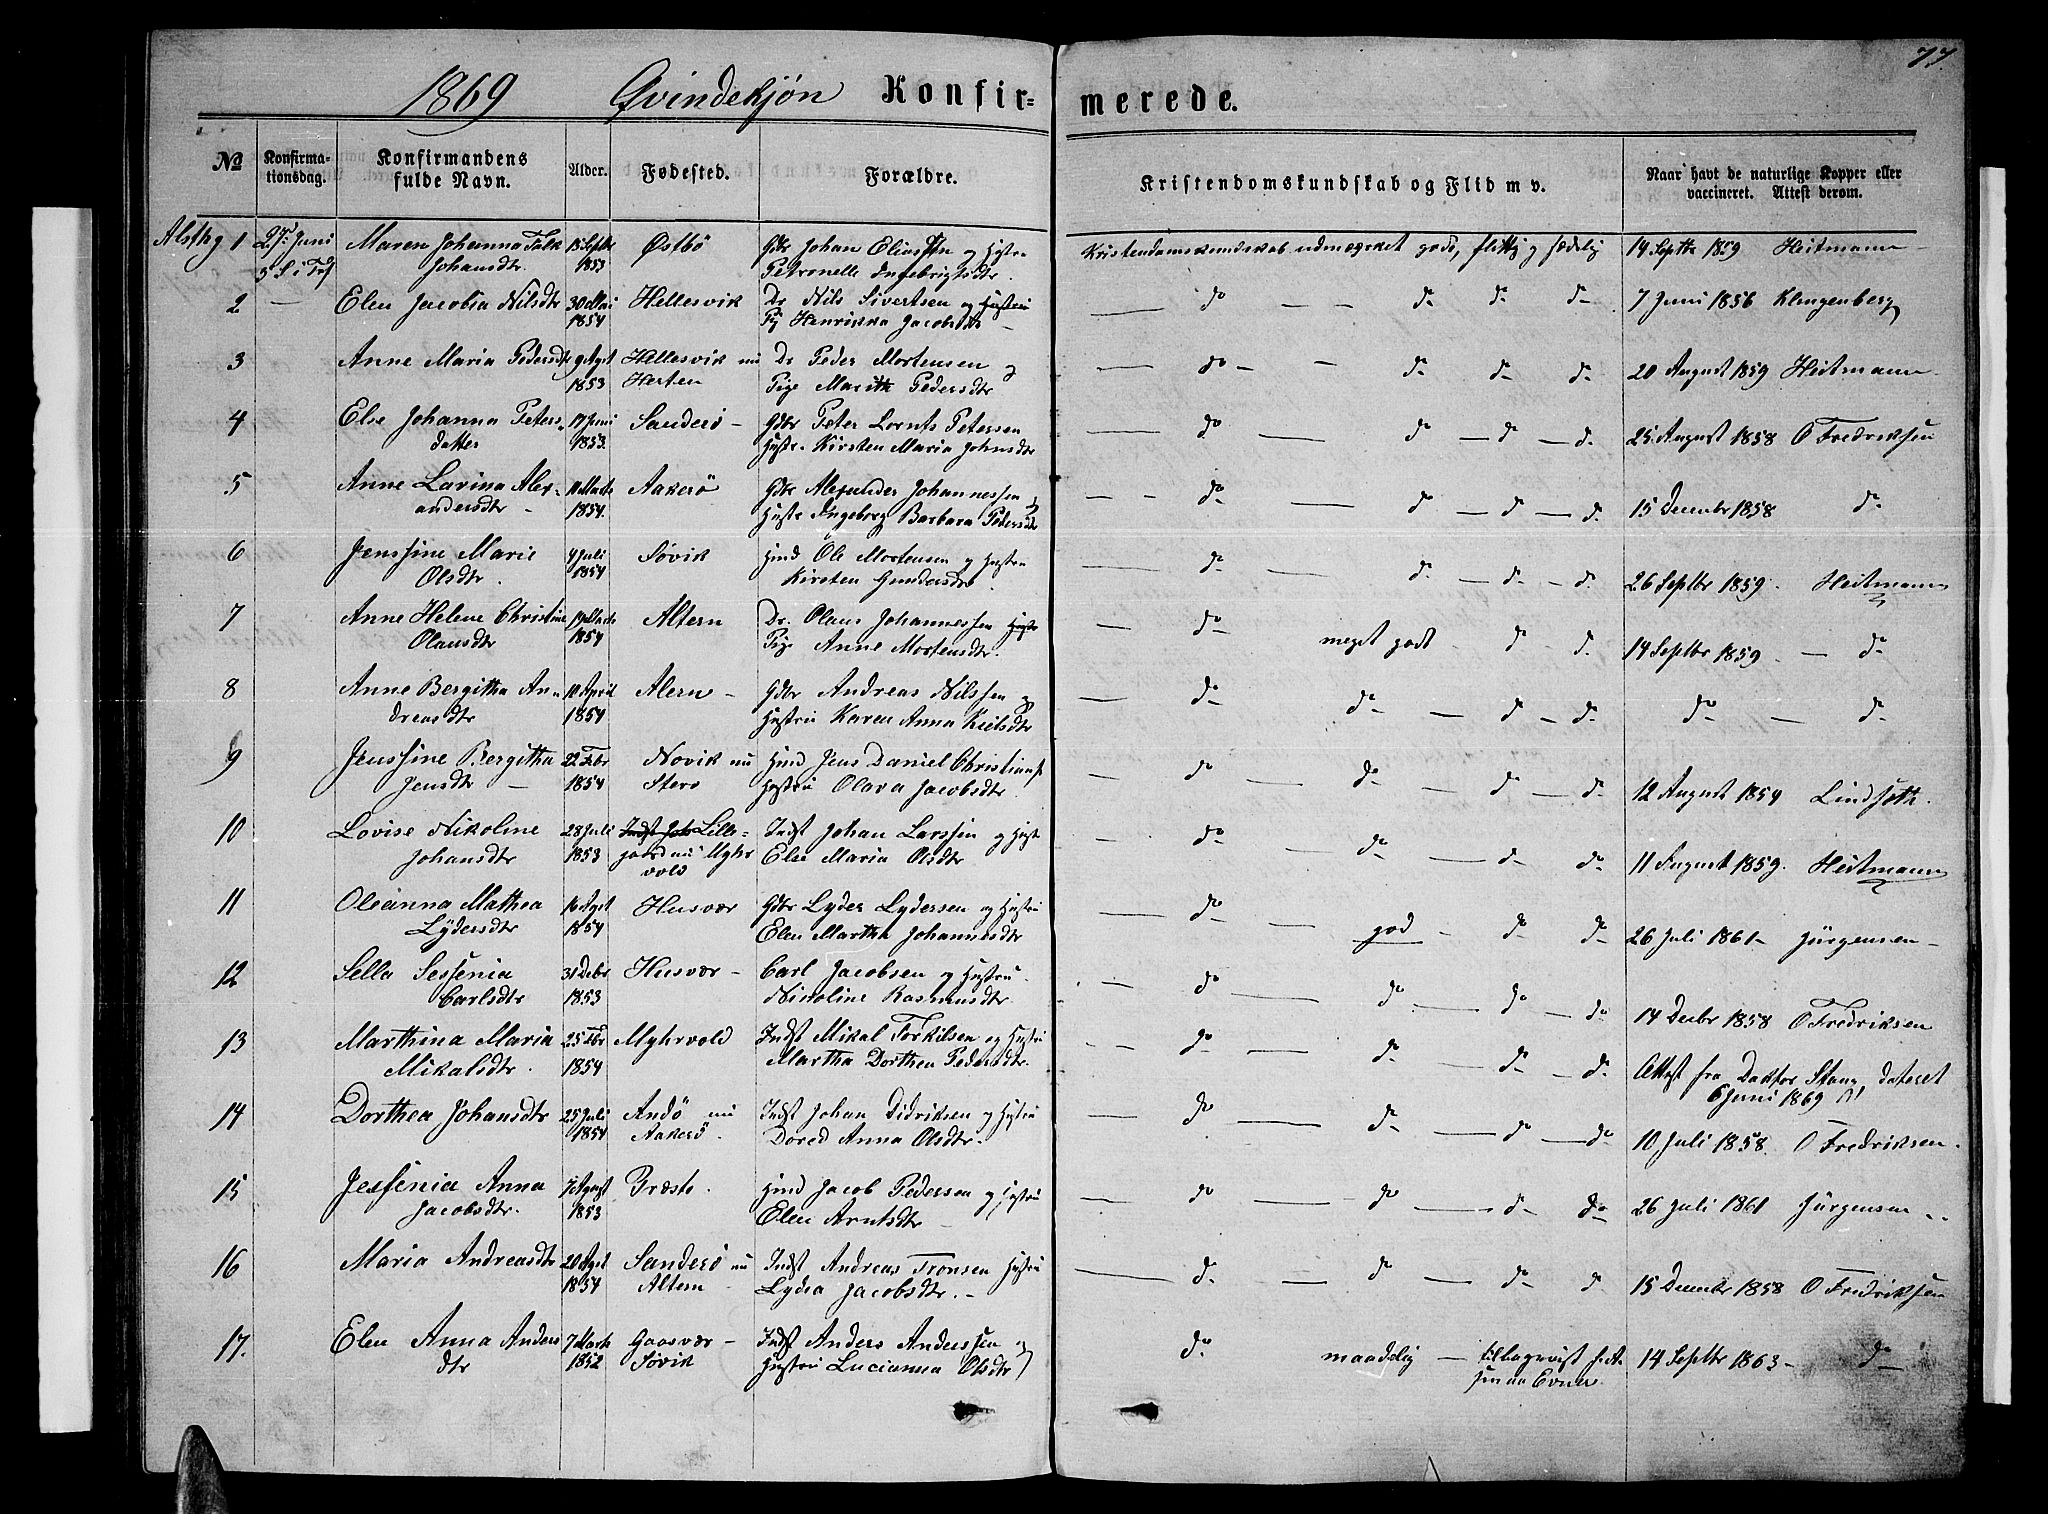 77
1869 Qvindekjøn Konfirmerede.
№ Konfirmationsdag. Konfirmandens fulde Navn. Alder. Fødested. Forældre. Kristendomskundskab og Flid m v. Naar havt de naturlige Kopper eller vaccineret. Attest derom.
Alsthg 1 27. Juni Maren Johanna Falk 13 Septbr Østbö Gdbr Johan Eliassen og Hustru Kristendomskundskab udmærket gode, flittig og sædelig 14 Septbr 1859 Heitmann
Johansdtr 1853 Petronelle Ingebrigtsdtr
2 — Elen Jacobia Nilsdtr 30 Mai Hellesvik Dr. Nils Sivertsen og Hustru — do — — do do do 7 Juni 1856 Klingenberg
1854 Pg Henrikka Jacobsdtr
3 Anne Maria Pedersdtr 9 Agst Hellesvik nu Dr Peder Mortensen og — do — — do do do 20 August 1859 Heitmann
1853 Herten Pige Marith Pedersdtr
4 Else Johanna Peters- 17 Juni Sanderö Gdbr Peter Lornts Petersen — do — do — do — do 25 August 1858 O Fredriksen
datter 1853 Hustr. Kirsten Maria Johnsdtr
5 Anne Lavina Alex- 10 Marts Aakerö Gdbr Alexander Johannessen og — — do — do — do — do 15 Decembr 1858 do
andersdtr 1854. Hustr Ingeborg Barbara Pedersdtr
6 Jenssine Marie 4 Juli Søvik Hmd Ole Mortensen og Hustru — do — do — do — do 26 Septbr 1859. Heitmann
Olsdtr. 1854 Kirsten Gundersdtr
7 Anne Helene Christine 19 Marts Altern Dr. Olaus Johannessen Hustr — do meget godt - do - do 14 Septbr 1859 — do
Olausdtr 1854 Pige Anne Mortensdtr.
8 Anne Bergitha An- 10 April Alern — Gdbr Andreas Nilssen og — do do — do — do do — do
dreasdtr 1854 Hustru Karen Anna Kielsdtr
9 Jenssine Bergitha 22 Febr Novik nu Hmd Jens Daniel Christians — do — do — do — do 12 August 1854 Lindseth.
Jensdtr 1854 Stero Hustru Olava Jacobsdtr
10 Lovise Nikoline 28 Juli Indst Joh Lille- Indst Johan Larssen og Hust — do — do — do do 11 August 1859. Heitmann
Johansdtr 1853 gaard nu Myhr Else Maria Olsdtr
vold
11 Oleanna Mathea 16 Agst Husvær Gdbr Lyder Lydersen og Hustru — do — god - do do 26 Juli 1861 - Jürgensen
Lydersdtr 1854 Elen Martha Johannesdtr
12 Sella Sessenia 31 Debr Husvær Carl Jacobsen og Hustru — do — do — do — do 14 Decbr 1858 O Fredriksen
Carlsdtr 1853 Nicoline Rasmusdtr
13 Marthina Maria 25 Fbr Myhrvold Indst Mikal Torkilsen og Hustru — do — do — do — do Attest fra Doktor Stang, dateret
Mikalsdtr. 1854 Martha Dorthea Pedersdtr. 6 Juni 1869
14 Dorthea Johansdtr 25 Juli Andö nu Indst Johan Didriksen og Hustru — do — do — do — do 10 Juli 1858. O Fredriksen.
1854 Aakerö. Dored Anna Olsdtr.
15 Jessenia Anna 7 Agust Bræsto. Hmd Jacob Pedersen og Hustru — do — do — do do 26 Juli 1861 Jürgensen
Jacobsdtr. 1853 Elen Arntsdtr
16 Maria Andreasdtr 20 Agst Sanderö nu Indst Andreas Tronsen Hustru — do — do — do do 15 Decembr 1858 O Fredriksen
1854 Altern Lydia Jacobsdtr.
17. Elen Anna Anders 7 Marts Gaasvær — Indst Anders Anderssen og do maadelig — tilbagevist 14 Septbr 1863 — do
dtr 1852 Søvik Hustru Lucianna Olsdtr Evner